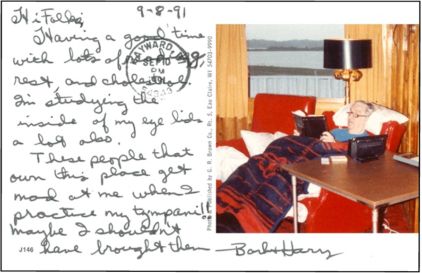 9-8-91
Hi Folks,
Having a good time
with lots of
rest, and cholesterol.
I'm studying the
inside of my eye lids
a lot also.
These people that
own this place get
mad at me when I
practice my tympani
maybe I shouldn't
have brought them — Barb + Harry
HAYWARD,
SEP 10
PM
J146
Published by G. R. Brown Co., Inc., Eau Claire, WI 54703-9990